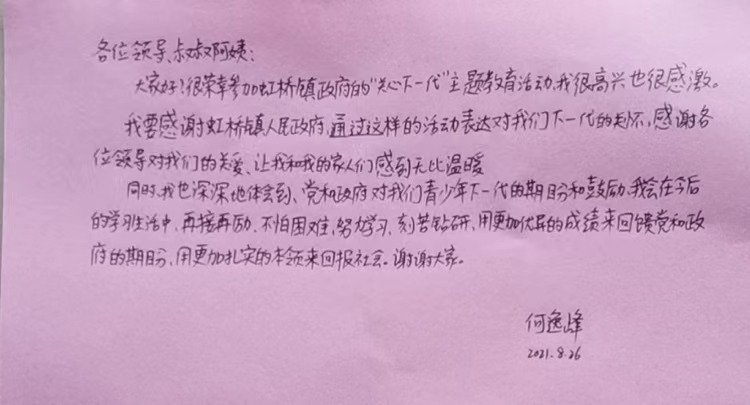 各位领导、叔叔阿姨：
大家好！很荣幸参加虹桥镇政府的“关心下一代”主题教育活动，我很高兴也很感激。
我要感谢虹桥镇人民政府，通过这样的活动表达对我们下一代的关怀，感谢各
位领导对我们的关爱、让我和我的家人们感到无比温暖
同时，我也深深地体会到、党和政府对我们青少年下一代的期盼和鼓励，我会在今后
的学习生活中，再接再励，不怕困难，努力学习，刻苦钻研，用更加优异的成绩来回馈党和政
府的期盼，用更加扎实的本领来回报社会。谢谢大家。
何逸峰
2021.8.26